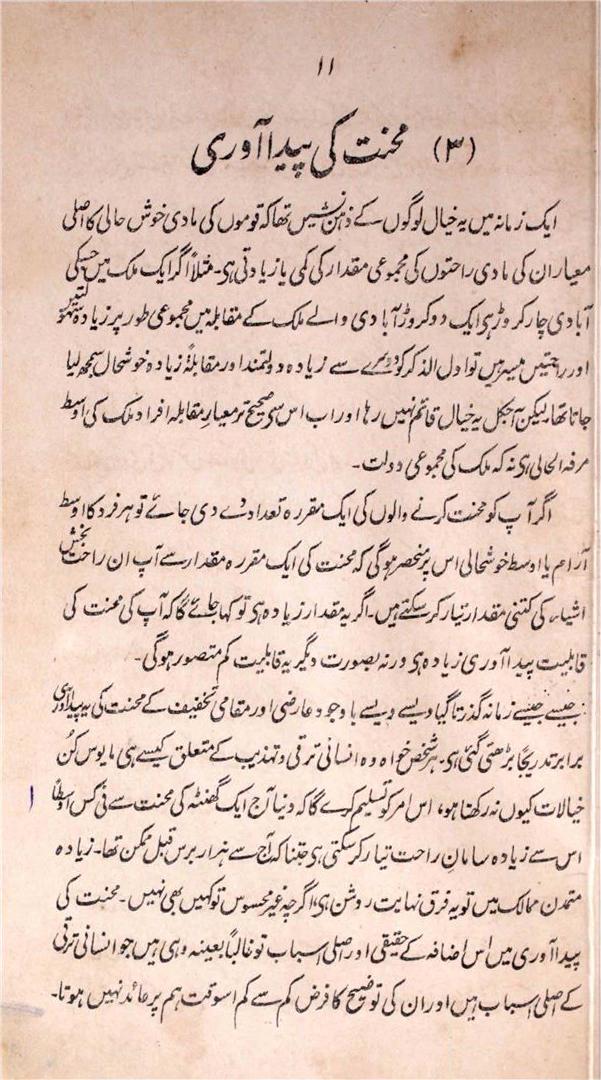 ۱۱
(۳) محنت کی پیدا آوری
ایک زمانہ میں یہ خیال لوگوں کے ذہن نشیں تھا کہ قوموں کی مادی خوش حالی کا اصلی
معیار ان کی مادی راحتوں کی مجموعی مقدار کی کمی یا زیادتی ہی۔ مثلاً اگر ایک ملک میں جسکی
آبادی چار کروڑ ہی ایک دو کروڑ آبادی والے ملک کے مقابلہ میں مجموعی طور پر زیادہ
اور راحتیں میسر ہیں تو اول الذکر کو دوسرے سے زیادہ دولتمند اور مقابلۃً زیادہ خوشحال سمجھ لیا
جاتا تھا۔ لیکن آجکل یہ خیال قائم نہیں رہا اور اب اس سی صحیح تر معیارِ مقابلہ افراد ملک کی اوسط
مرفہ الحالی ہی نہ کہ ملک کی مجموعی دولت۔
اگر آپ کو محنت کرنے والوں کی ایک مقررہ تعداد دے دی جائے تو ہر فرد کا اوسط
آرام یا اوسط خوشحالی اس پر منحصر ہوگی کہ محنت کی ایک مقررہ مقدار سے آپ ان راحت بخش
اشیاء کی کتنی مقدار تیار کر سکتے ہیں۔ اگر یہ مقدار زیادہ ہی تو کہا جائے گا کہ آپ کی محنت کی
قابلیت پیدا آوری زیادہ ہی ورنہ بصورت دیگر یہ قابلیت کم متصور ہوگی۔
جیسے جیسے زمانہ گذرتا گیا ویسے ویسے باوجود عارضی اور مقامی تخفیف کے محنت کی یہ پیدا آوری
برابر تدریجاً بڑھتی گئی ہی۔ ہر شخص خواہ وہ انسانی ترقی و تہذیب کے متعلق کیسے ہی مایوس کُن
خیالات کیوں نہ رکھتا ہو، اس امر کو تسلیم کرے گا کہ دنیا آج ایک گھنٹہ کی محنت سے فی کس اوسطاً
اس سے زیادہ سامانِ راحت تیار کر سکتی ہی جتنا کہ آج سے ہزار برس قبل ممکن تھا۔ زیادہ
متمدن ممالک میں تو یہ فرق نہایت روشن ہی، اگرچہ غیر محسوس تو کہیں بھی نہیں۔ محنت کی
پیدا آوری میں اس اضافہ کے حقیقی اور اصلی اسباب تو غالباً بعینہ وہی ہیں جو انسانی ترقی
کے اصلی اسباب ہیں اور ان کی توضیح کا فرض کم سے کم اسوقت ہم پر عائد نہیں ہوتا۔